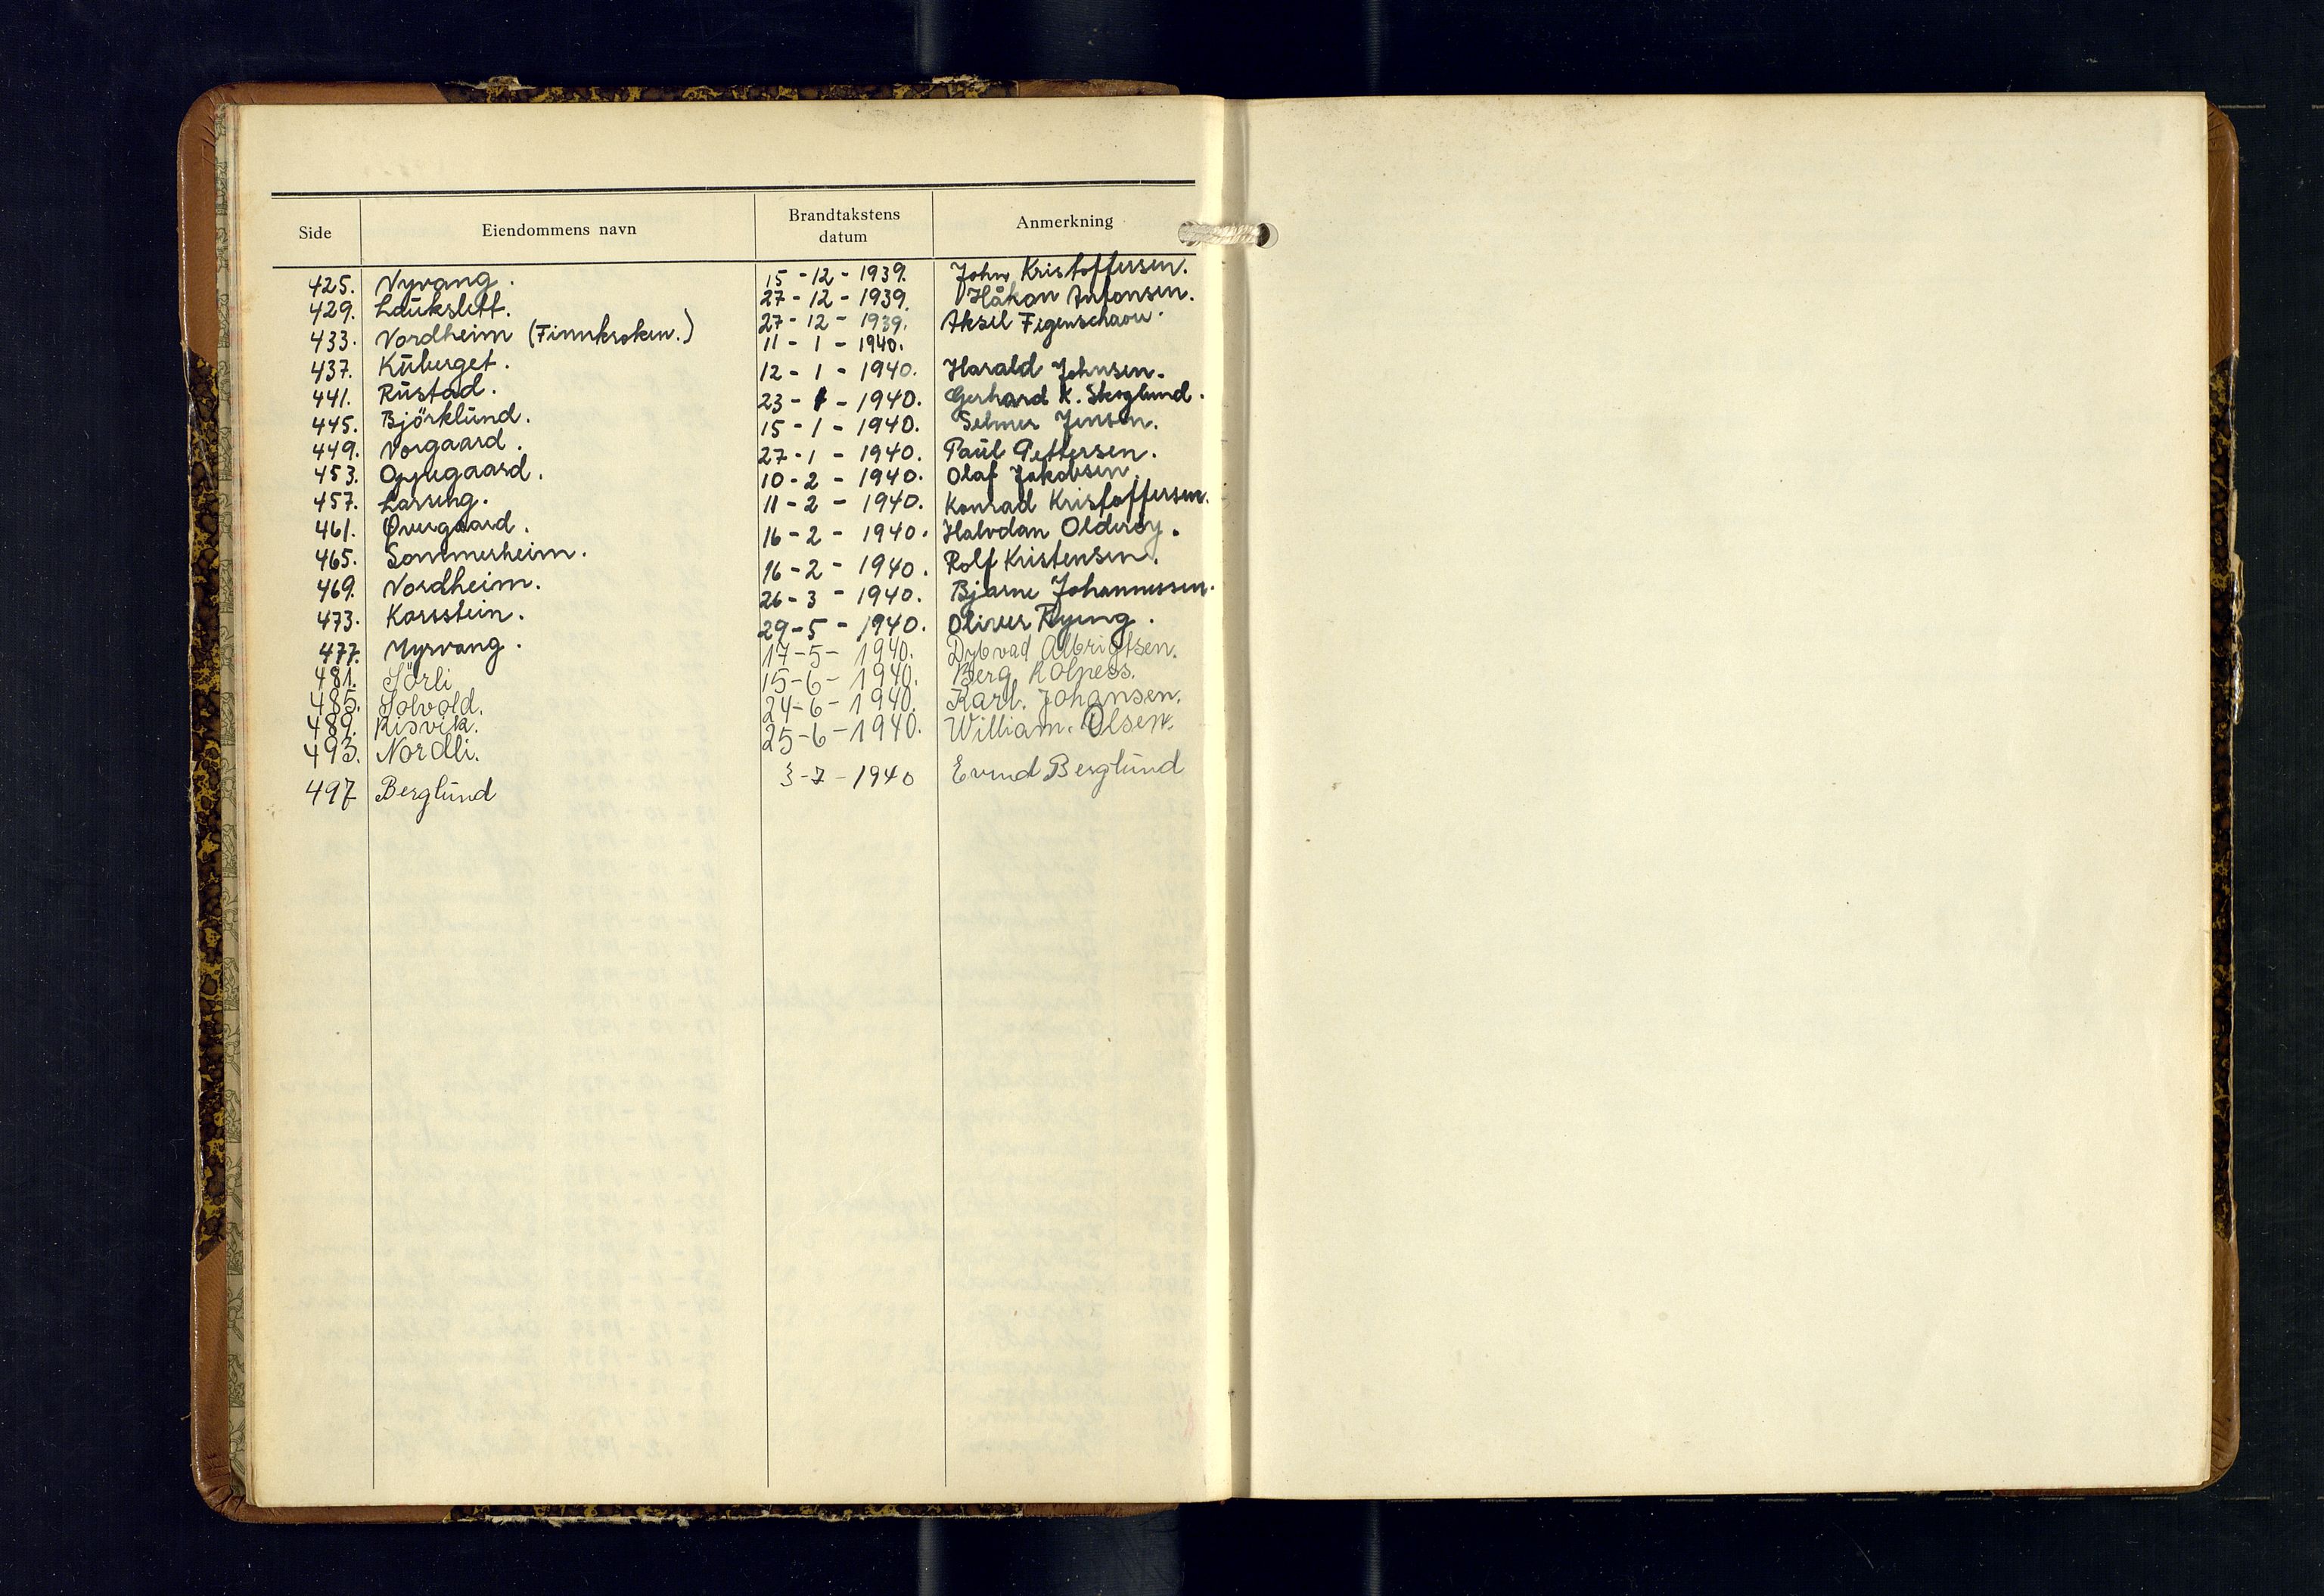 Side Eiendommens navn Brandtakstens datum Anmerkning
425. Nyvang. 15-12-1939. John Kristoffersen.
429. Laŭkslett. 27-12-1939. Håkon Antonsen.
433. Nordheim (Finnkroken.) 27-12-1939. Aksel Figenschaou.
11-1-1940.
437. Kŭberget. 12-1-1940. Harald Johnsen.
441. Rŭstad. 23-1-1940. Gerhard K. Skoglund.
445. Björklŭnd. 15-1-1940. Selmer Jensen.
449. Norgaard. 27-1-1940. Paŭl Pettersen.
453. Oppegaard. 10-2-1940. Olaf Jakobsen.
457. Larseng. 11-2-1940. Konrad Kristoffersen.
461. Øvergaard. 16-2-1940. Halvdan Olderøy.
465. Sommerheim. 16-2-1940. Rolf Kristensen.
469. Nordheim. 26-3-1940. Bjarne Johannessen.
473. Korsstein. 29-5-1940. Oliver Ryeng.
477. Myrvang. 17-5-1940. Dybvad Albrigtsen.
481. Sörli 15-6-1940. Berg Kolpess.
485. Solvold. 24-6-1940. Karl. Johansen.
489. Risvik. 25-6-1940. William. Olsen.
493. Nordli.
497 Berglŭnd 3-7-1940 Evind Berglŭnd